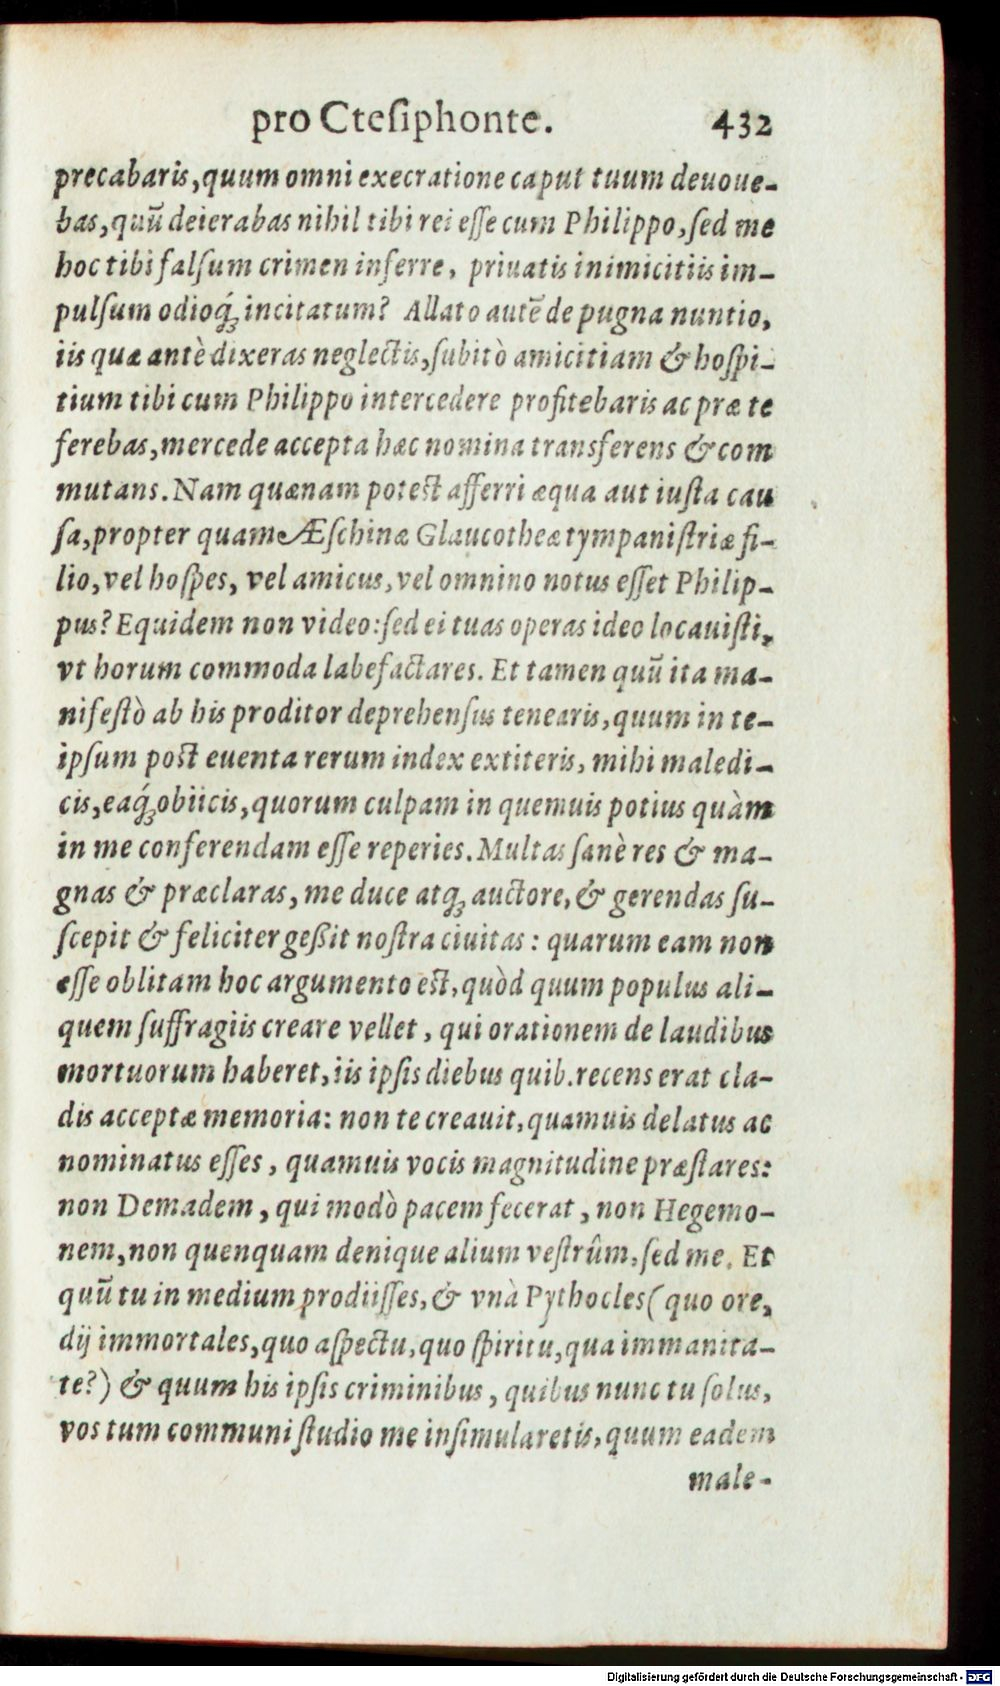 pro Cteſiphonte. 432
precabaris, quum omni execratione caput tuum deuoue-
bas, quū deierabas nihil tibi rei eſſe cum Philippo, ſed me
hoc tibi falſum crimen inferre, priuatis inimicitiis im-
pulſum odioq́ꝫ incitatum? Allato autē de pugna nuntio,
iis quæ antè dixeras neglectis, ſubitò amicitiam & hoſpi-
tium tibi cum Philippo intercedere profitebaris ac præ te
ferebas, mercede accepta hæc nomina transferens & com
mutans. Nam quænam poteſt afferri æqua aut iuſta cau
ſa, propter quam Æſchinæ Glaucotheæ tympaniſtriæ fi-
lio, vel hoſpes, vel amicus, vel omnino notus eſſet Philip-
pus? Equidem non video: ſed ei tuas operas ideo locauiſti,
vt horum commoda labefactares. Et tamen quū ita ma-
nifeſtò ab his proditor deprehenſus tenearis, quum in te-
ipſum poſt euenta rerum index extiteris, mihi maledi-
cis, eaq́ꝫ obiicis, quorum culpam in quemuis potius quàm
in me conferendam eſſe reperies. Multas ſanè res & ma-
gnas & præclaras, me duce atqꝫ auctore, & gerendas ſu-
ſcepit & feliciter geßit noſtra ciuitas: quarum eam non
eſſe oblitam hoc argumento eſt, quòd quum populus ali-
quem ſuffragiis creare vellet, qui orationem de laudibus
mortuorum haberet, iis ipſis diebus quib. recens erat cla-
dis acceptæ memoria: non te creauit, quamuis delatus ac
nominatus eſſes, quamuis vocis magnitudine præſtares:
non Demadem, qui modò pacem fecerat, non Hegemo-
nem, non quenquam denique alium veſtrûm, ſed me. Et
quū tu in medium prodiiſſes, & vnà Pythocles (quo ore,
dij immortales, quo aſpectu, quo ſpiritu, qua immanita-
te?) & quum his ipſis criminibus, quibus nunc tu ſolus,
vos tum communi ſtudio me inſimularetis, quum eadem
male-
Digitalisierung gefördert durch die Deutsche Forschungsgemeinschaft - DFG